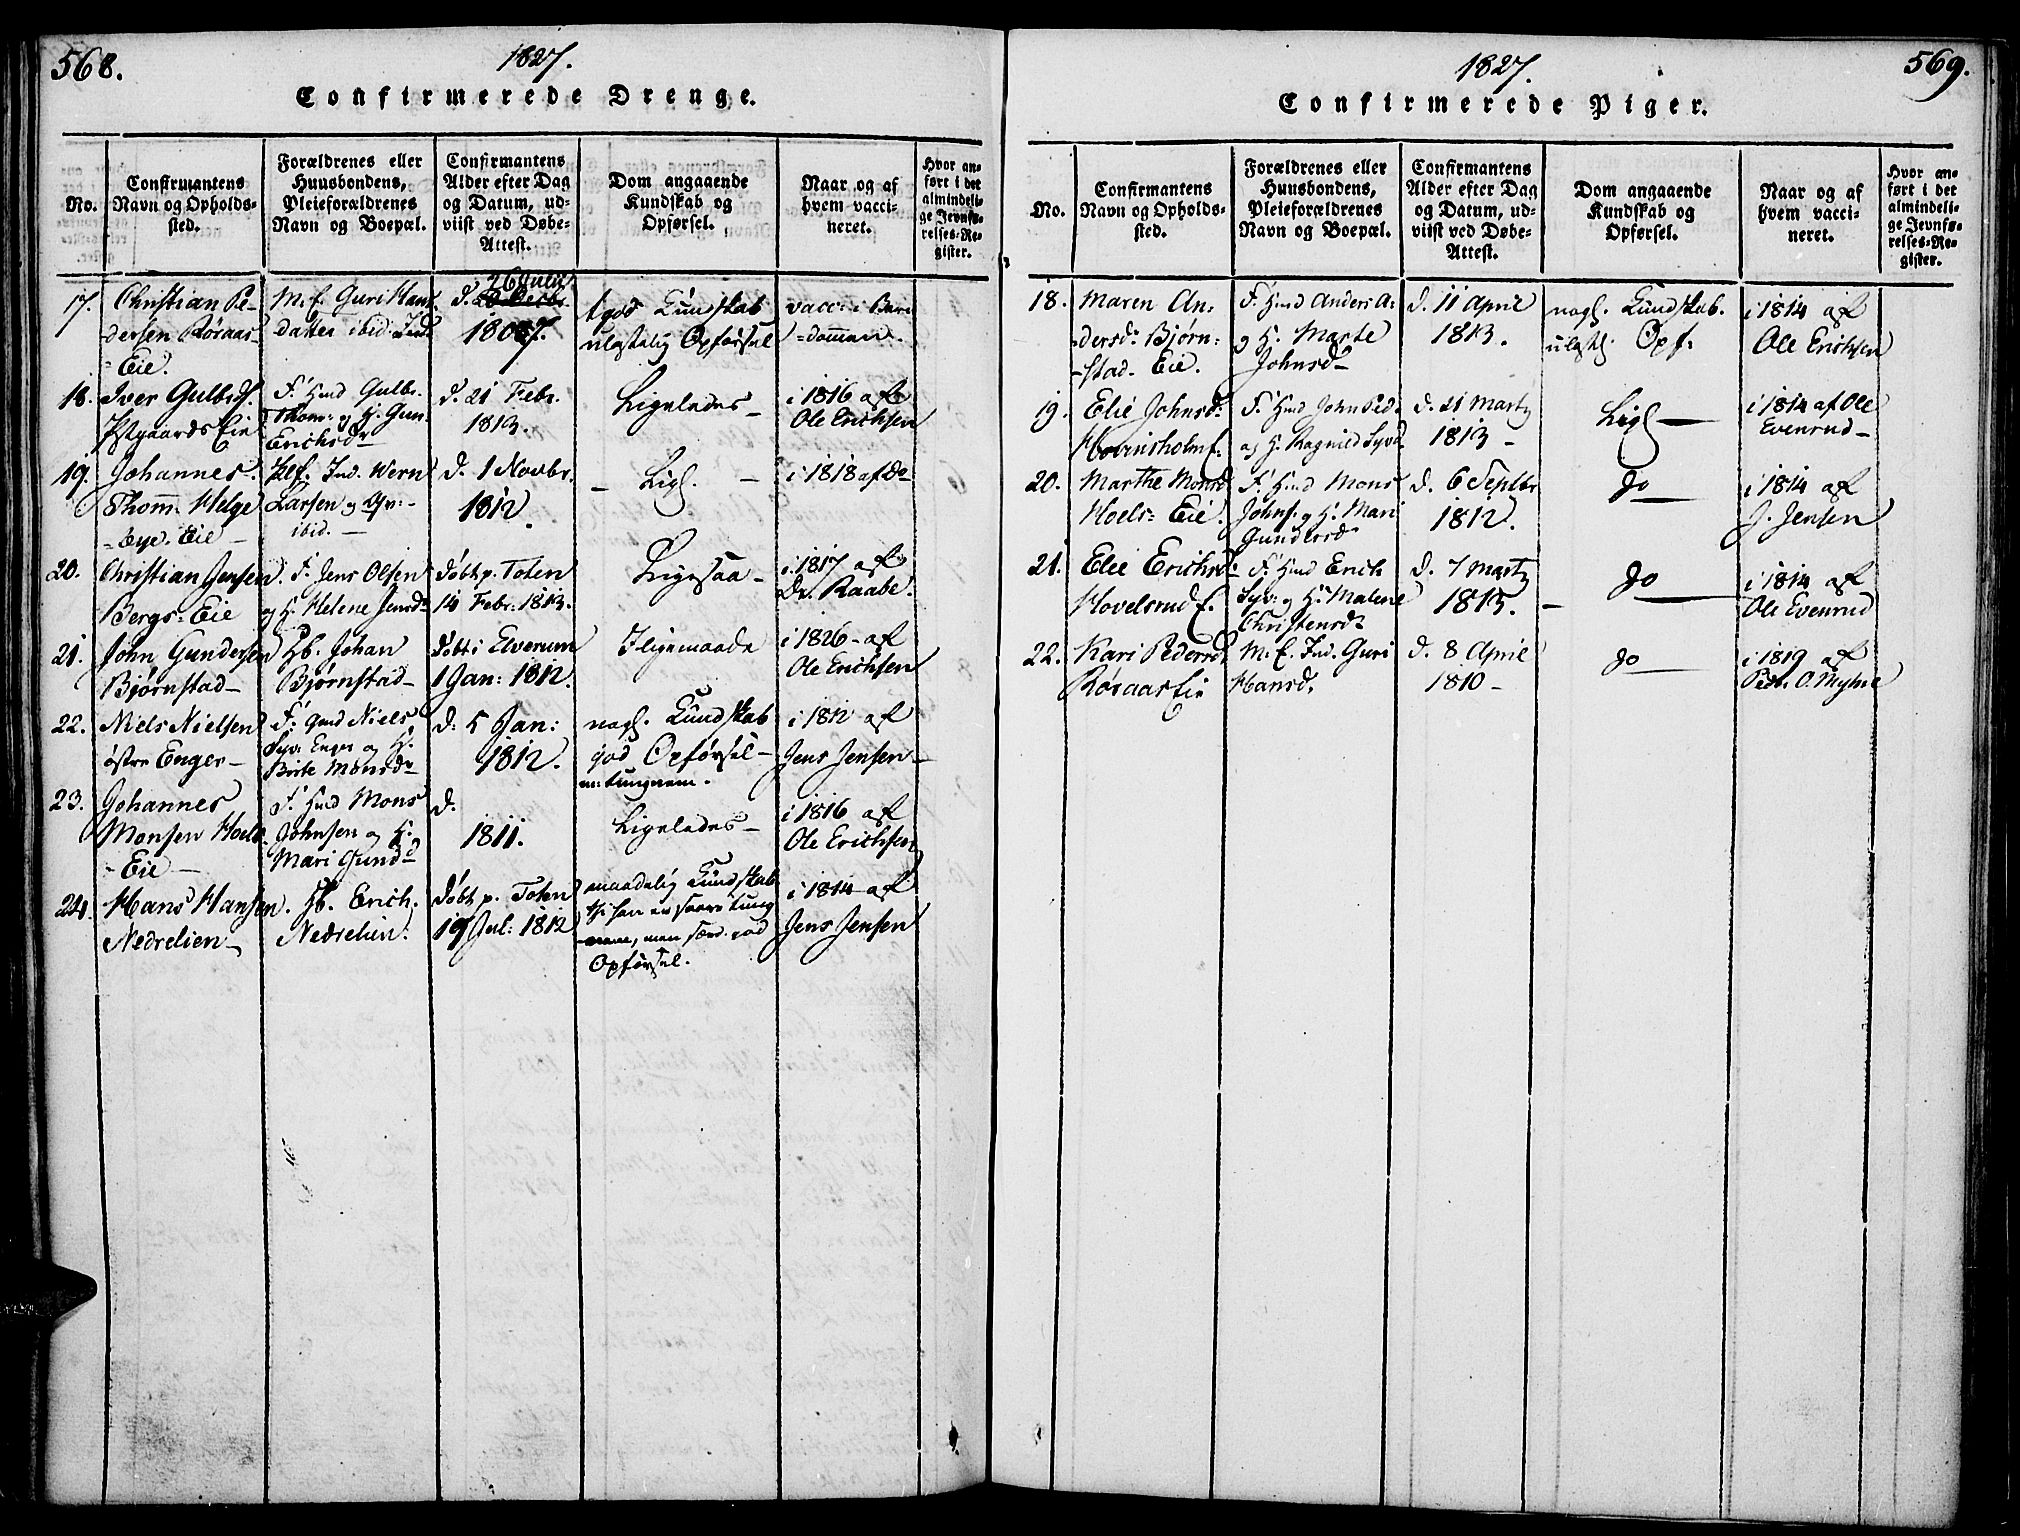 568.
1827.
Confirmerede Drenge.
No.
Confirmantens
Navn og Opholds-
sted.
Forældrenes eller
Huusbondens,
Pleieforældrenes
Navn og Boepæl.
Confirmantens
Alder efter Dag
og Datum, ud-
viist ved Døbe-
Attest.
Dom angaaende
Kundskab og
Opførsel.
Naar og af
hvem vacci-
neret.
Hvor an-
ført i det
almindeli-
ge Jevnfø-
relses-Re-
gister.
17.
Christian Pe-
dersen Röraas-
=Eie.
M. E. Guri Hans
datter ibid: Ind
26 Juli
d.
1807.
god Kundskab
ulastelig Opførsel
vacc: i Barn
-dommen.
18.
Iver Gulbrds.
Eie
F. Hmd Gulbr.
Thom: og H. Gun.
Erichsdr
d. 21 Febr.
1813.
Ligeledes-
i 1816 af
Ole Erichsen
19.
Johannes
Thom: Helge
-bye. Eie -
Ind. Wern
Larsen og
ibid. -
d. 1 Novbr.
1812.
- Ligl. -
i 1818 af Do
20.
Christian Jensen
Bergs=Eie
F. Jens Olsen
og H. Helene Jensdr
döbt p. Toten
14 Febr: 1813.
Ligesaa-
i 1817 af
Dr. Raabe.
21.
John Gundersen
Bjørnstad-
Hb. Johan
Bjørnstad-
döbt i Elverum
1 Jan: 1812.
Iligemaade
i 1826 - af
Ole Erichsen
22.
Niels Nielsen
östre Enger-
F. Gmd Niels
Syv: Enger og H.
Birte Monsdr
d. 5 Jan:
1812.
nogl. Kundskab
god Opførsel-
m: tungnem.
i 1812 af
Jens Jensen-
23.
Johannes
Monsen Hoels
-Eie-
F. Hmd Mons
Johnsen og H.
Mari Gundd
d.
1811.
Ligeledes-
i 1816 af
Ole Erichsen
24.
Hans Hansen.
Nedrelien-
Hb. Erich.
Nedrelien.
döbt p. Toten
19 Jul: 1812
maadelig Kundskab
thi han er saare tung
-nem, men særd. god
Opførsel.
i 1814 af
Jens Jensen
569.
1827.
Confirmerede Piger.
No.
Confirmantens
Navn og Opholds-
sted.
Forældrenes eller
Huusbondens,
Pleieforældrenes
Navn og Boepæl.
Confirmantens
Alder efter Dag
og Datum, ud-
viist ved Døbe-
Attest.
Dom angaaende
Kundskab og
Opførsel.
Naar og af
hvem vacci-
neret.
Hvor an-
ført i det
almindeli-
ge Jevnfø-
relses-Re-
gister.
18.
Maren An-
dersd: Bjørn=
-stad. Eie.
F. Hmd Anders A:
og H. Marte
Johnsd-
d. 11 April
1813.
nogl. Kundskab.
ulastl. Opf:
i 1814 af
Ole Erichsen
19.
Elie Johnsd:
Hovinsholm E.
F. Hmd John Ped.
og H. Ragnild Syvd
d. 21 Marty
1813-
Ligl-
i 1814 af Ole
Evenrud-
20.
Marthe Monsd
Hoels= Eie.
F. Hmd Mons
Johns: og H. Mari
Gundersdr
d. 6 Septbr
1812.
do
i 1814 af
J. Jensen
21.
Elie Erichsd:
Hovelsrud E.
F. Hmd Erich
Syv: og H. Malene
Christensd.
d. 7 Marty
1813.
do
i 1814 af
Ole Evenrud
22.
Kari Pedersd
Röraas Eie
M. E. Ind. Guri
Hansd.
d. 8 April
1810-
do
i 1819 af
Peder O. Myhre